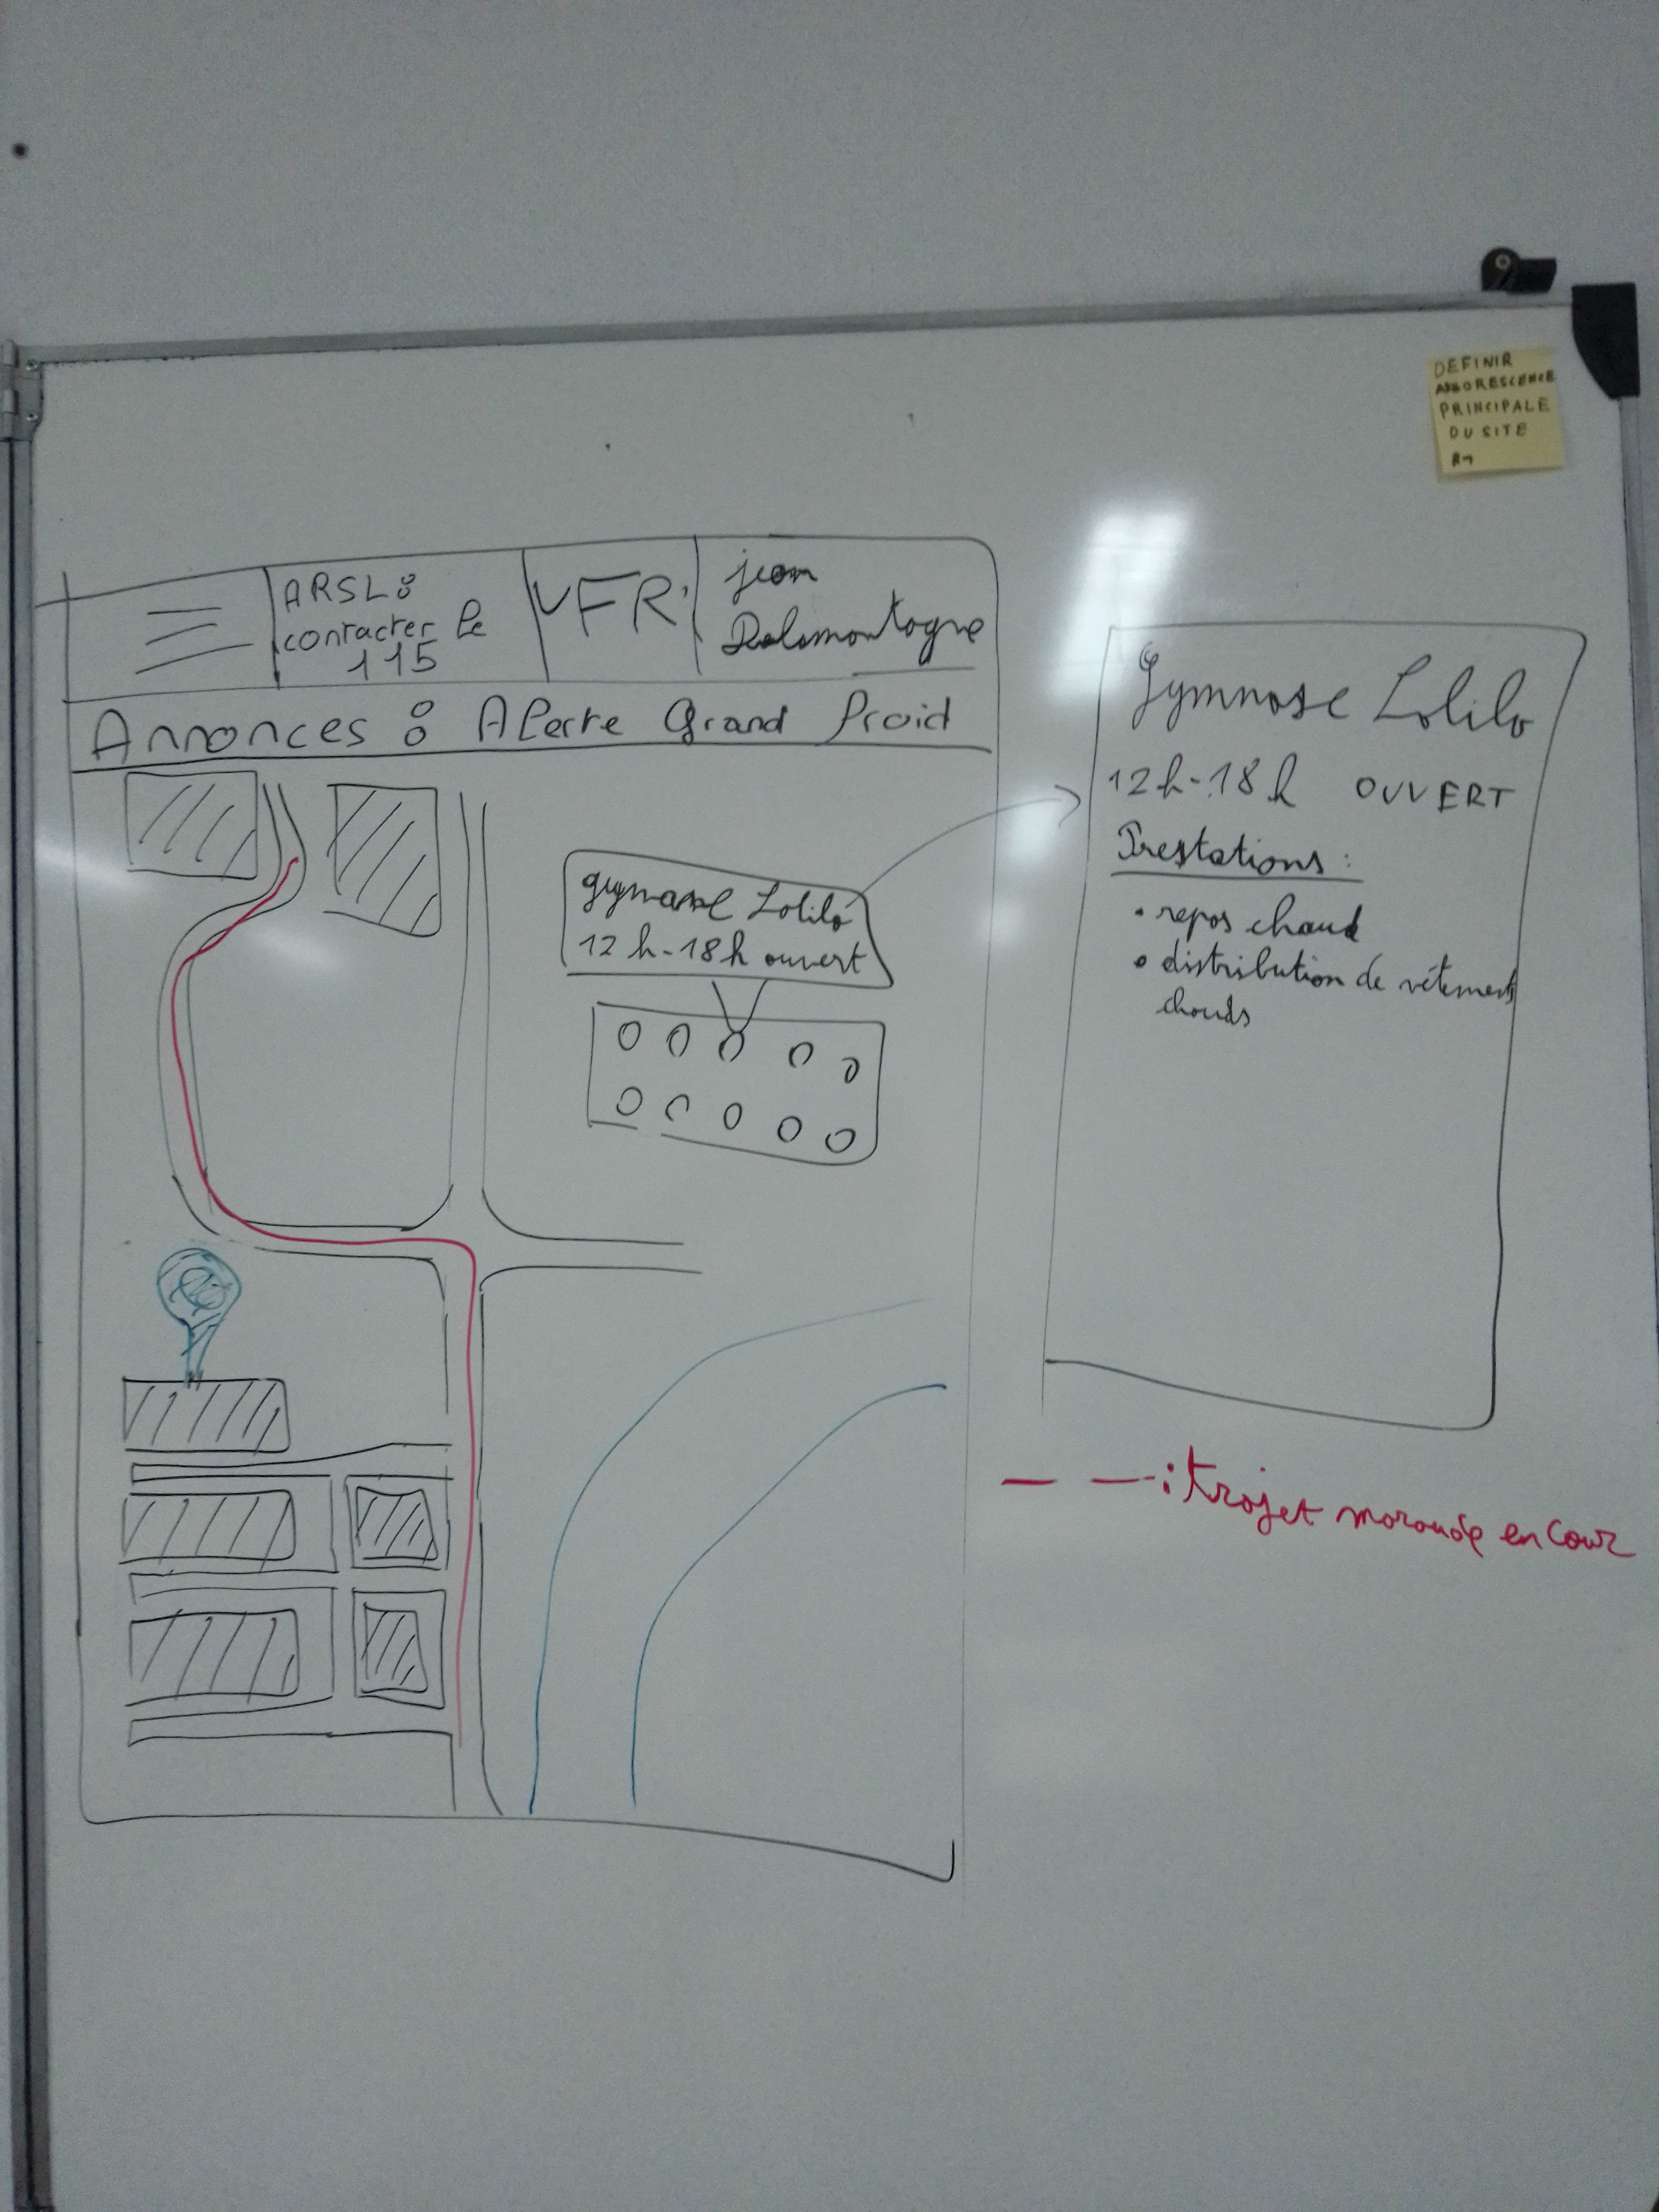 DEFINIR
ARBORESCENCE
PRINCIPALE
DU SITE
ARSL :
contacter le
115
FR
jean
Delamontagne
Annonces : Alerte Grand Froid
gymnase Lolilo
12h-18h ouvert
Gymnase Lolilo
12h-18h OUVERT
Prestations :
• repos chaud
• distribution de vêtements
chauds
— — : trajet maraude en cour